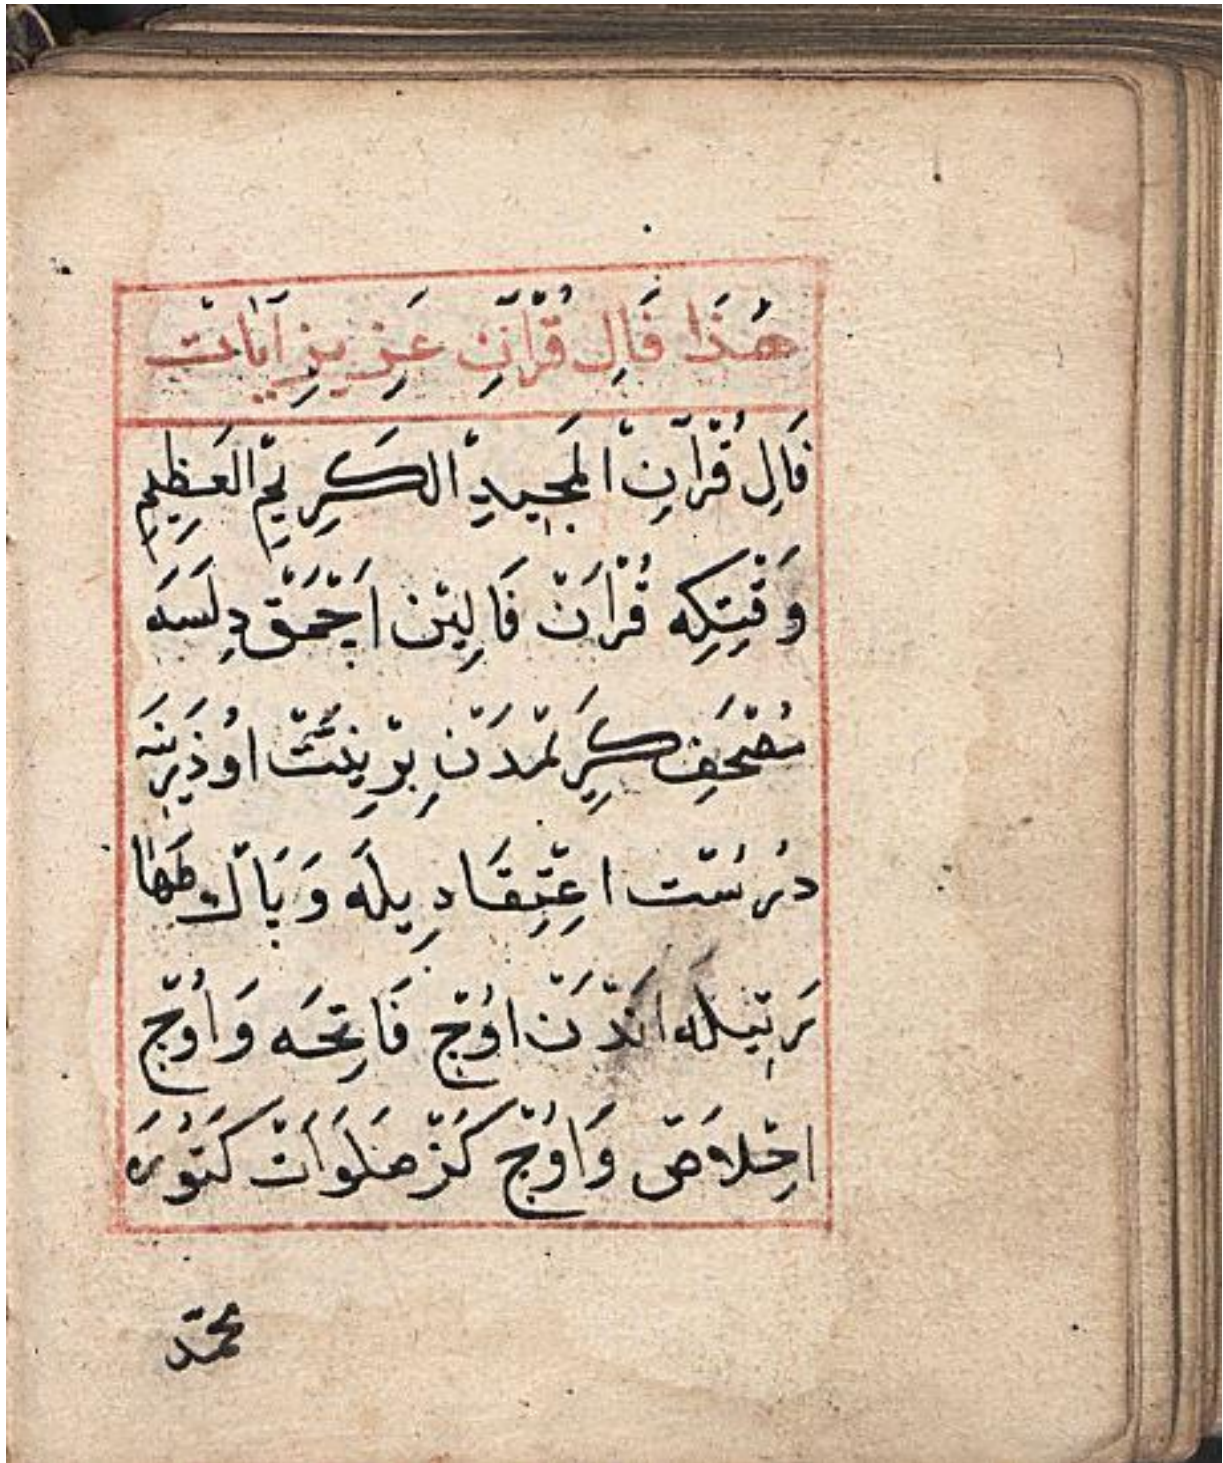 هٰذَا فَالِ قُرْآنِ عَزِيزِ آيَاتْ
فَالِ قُرْآنِ الْمَجِيدِ الْكَرِيمِ الْعَظِيمِ
وَقْتِكِه قُرْاَنْ فَالِيْنْ اَچْمَقْ دِلَسَه
مُصْحَفِ كَرِيمْدَنْ بِرْ نِيَّتْ اُوذَرِنَه
دُرُسْت اِعْتِقَادِيلَه وَپَاكْ طَهَا
رَتِيلَه اَنْدَنْ اُوچْ فَاتِحَه وَاُوچْ
اِخْلَاصْ وَاُوچْ كَزْ صَلَوَاتْ كَتُورَ
محمّد